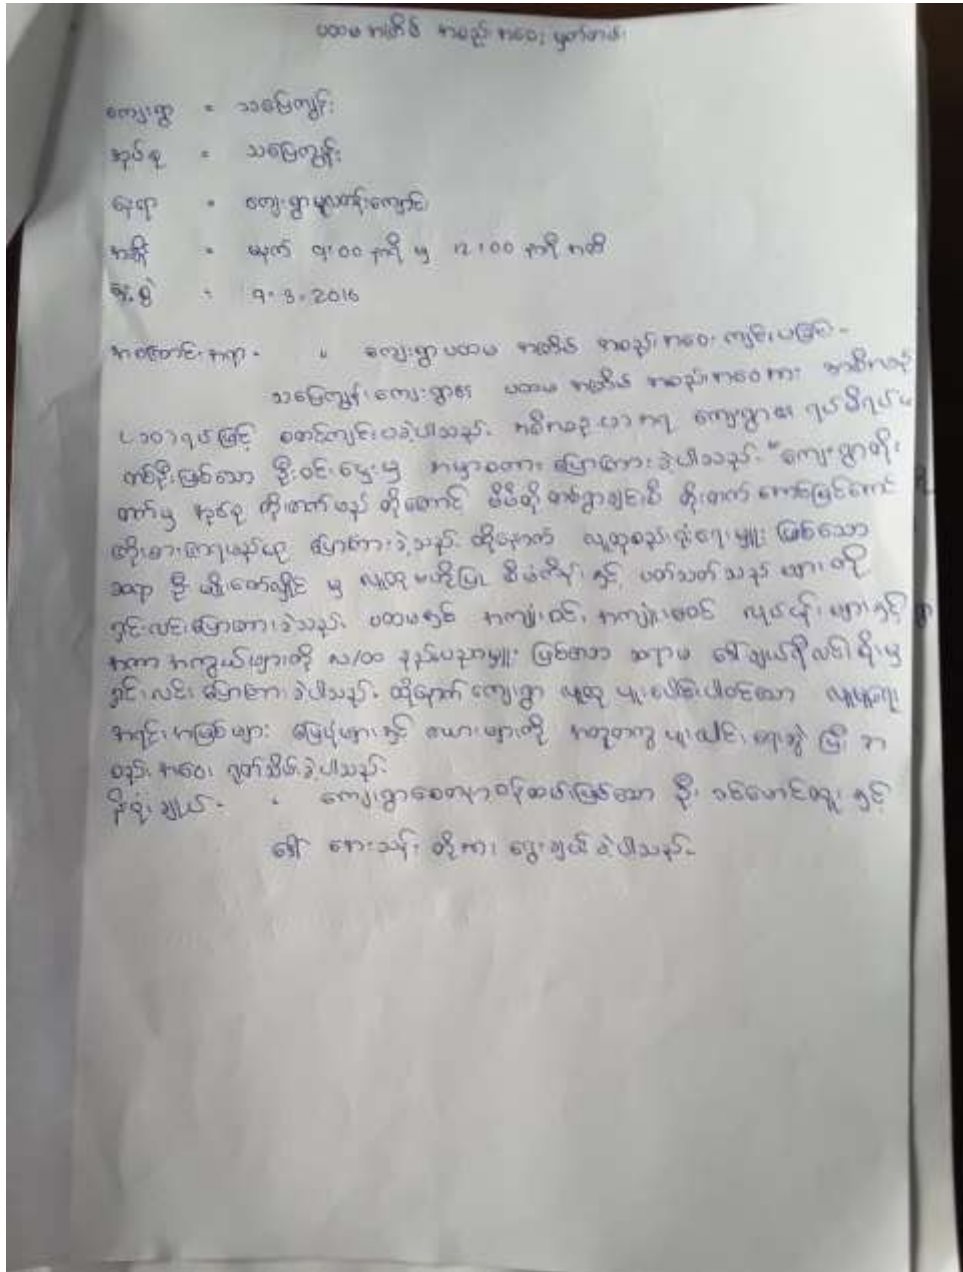 ပထမ အကြိမ် အစည်း အဝေး မှတ်တမ်း
ကျေးရွာ = သမြေကျွန်း
အုပ်စု = သမြေကျွန်း
နေရာ = ကျေးရွာမူလတန်းကျောင်း
အချိန် = မနက် ၉:00 နာရီ မှ 12:00 နာရီ အထိ
နေ့စွဲ = ၅.3.2016
အကြောင်းအရာ - ကျေးရွာပထမ အကြိမ် အစည်းအဝေး ကျင်းပခြင်း-
သမြေကျွန်းကျေးရွာ၏ ပထမ အကြိမ် အစည်းအဝေးကား အစီအစဉ်
ဖြင့် စတင်ကျင်းပခဲ့ပါသည်. အစီအစဉ် အရ ကျေးရွာ၏ ရပ်မိရပ်ဖ
တစ်ဦးဖြစ်သော ဦးဝင်းမွှေးမှ အမှာစကား ပြောကြားခဲ့ပါသည်. "ကျေးရွာတိုး
တက်မှ အုပ်စု တိုးတက်မည် ထို့ကြောင့် မိမိတို့ တိုးတက် အောင်
ကြိုးစားကြရမည်ဟု ပြောကြားခဲ့သည်. ထို့နောက် လူထုစည်းရုံးရေးမှူး ဖြစ်သော
ဆရာ ဦး မျိုးကျော်လှိုင် မှ လူထု ဗဟိုပြု စီမံကိန်း နှင့် ပတ်သတ် သည် များ ကို
ရှင်းလင်းပြောကြားခဲ့သည်. ပထမနှစ် အကျုံးဝင်၊ အကျုံးမဝင် လုပ်ငန်းများနှင့်
အကာ အကွယ်များကို လ/ထ နည်းပညာမှူး ဖြစ်သော ဆရာမ ဒေါ်ချယ်ရီလင်း မှ
ရှင်းလင်း ပြောကြား ခဲ့ပါသည်. ထို့နောက် ကျေးရွာ လူထု ပူးပေါင်းပါဝင်သော လူမှုရေး
အရင်းအမြစ်များ မြေပုံများနှင့် ဇယားများကို အတူတကွ ရေးဆွဲ ပြီး အ
စည်း အဝေး ရုတ်သိမ်းခဲ့ပါသည်.
နိဂုံးချုပ် - ကျေးရွာစေတနာ့ဝန်ထမ်းဖြစ်သော ဦး နှင့်
ဒေါ် အေးသန်း တို့အား ရွေးချယ် ခဲ့ပါသည်.